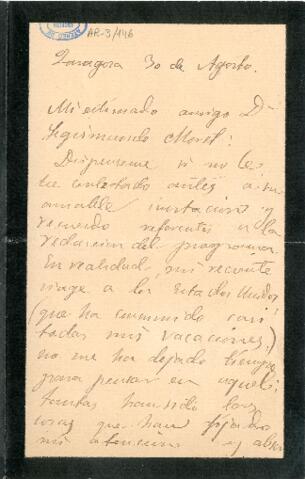 AR-3/446
Zaragoza 30 de Agosto.
Mi estimado amigo Dn
Segismundo Moret:
Dispenseme si no le
he contestado antes a su
amable invitacion y
recuerdo referentes a la
redaccion del programa.
En realidad, mi reciente
viage a los Estados Unidos
(que ha consumido casi
todas mis vacaciones)
no me ha dejado tiempo
para pensar en aquel:
tantas han sido las
cosas que han fijado
mi atencion y